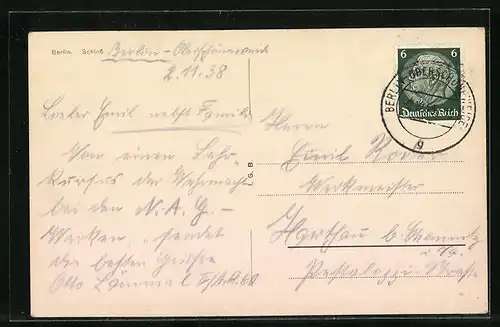 Berlin. Schloß Berlin-Oberschöneweide
2.11.38
Lieber Emil nebst Familie
Von einem Lehr-
kursus der Wehrmacht
bei den N.A.G.-
Werken, sendet
die besten Grüße
Otto
I. G. B.
6 6
Deutsches Reich
BERLIN-OBERSCHÖNEWEIDE
g
Herrn
Emil
Werkmeister
Harthau b. Chemnitz
i/Sa.
Pestalozzi-Straße